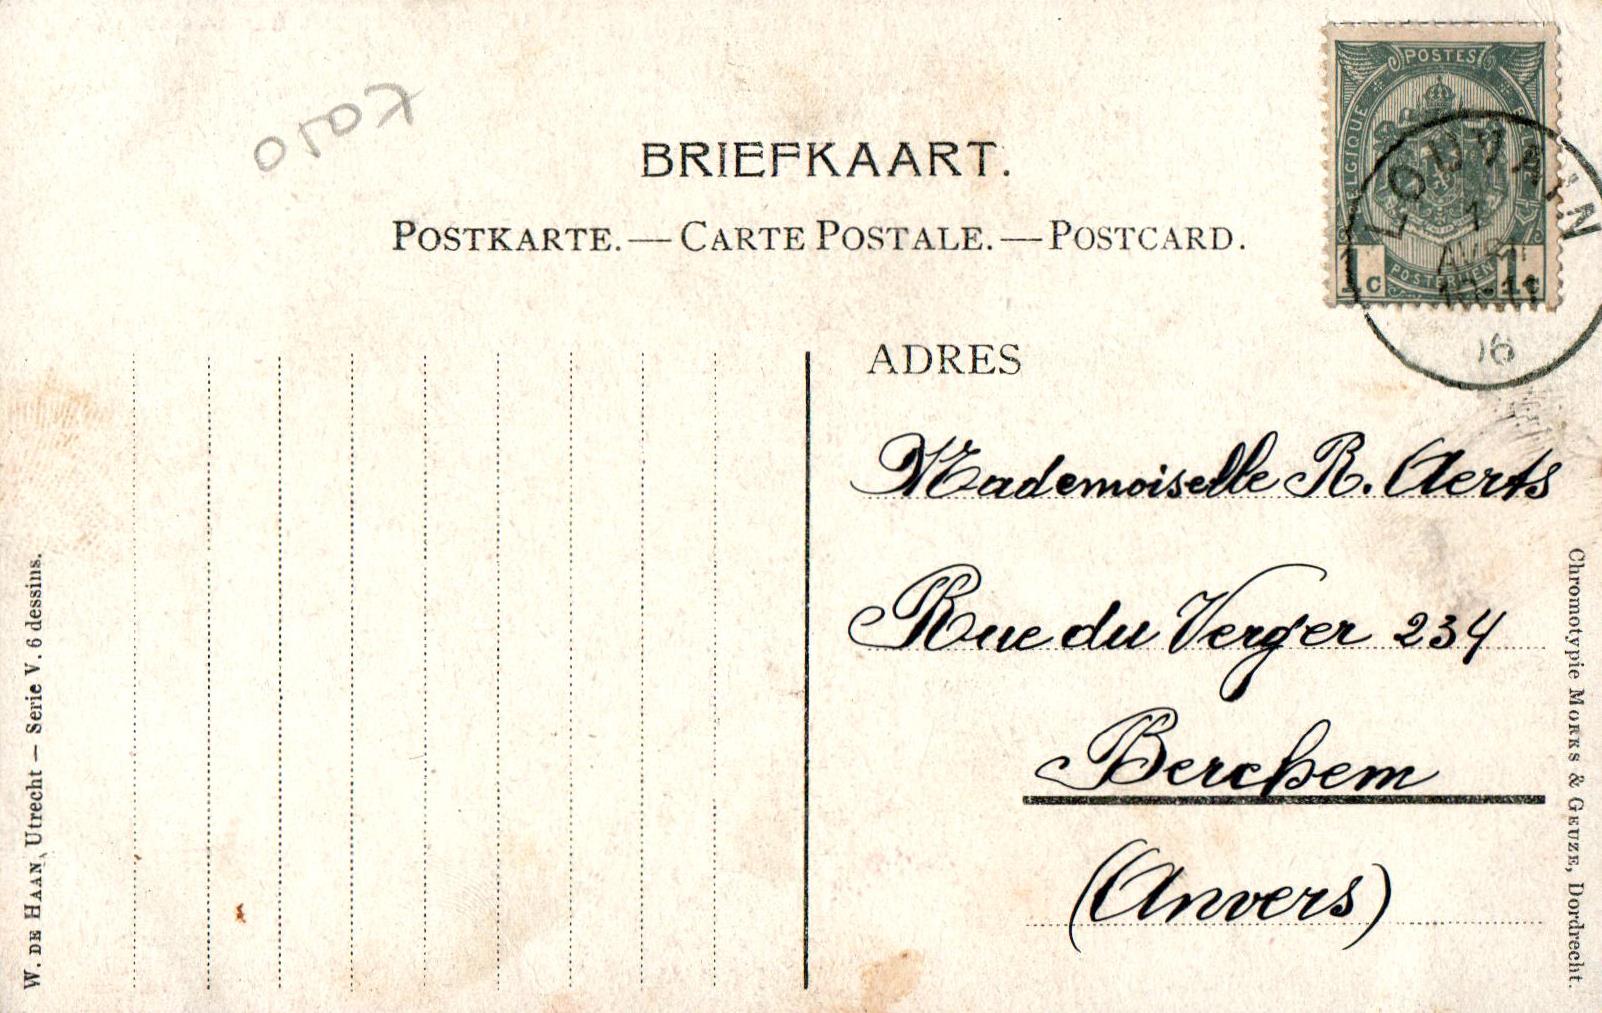 BRIEFKAART.
POSTKARTE. — CARTE POSTALE. — POSTCARD.
POSTES
BELGIQUE
POSTERIJEN
1c 1c
LOUVAIN
1
06
ADRES
Mademoiselle R. Aerts
Rue du Verger 234
Berchem
(Anvers)
W. DE HAAN, Utrecht — Serie V. 6 dessins.
Chromotypie MORKS & GEUZE, Dordrecht.